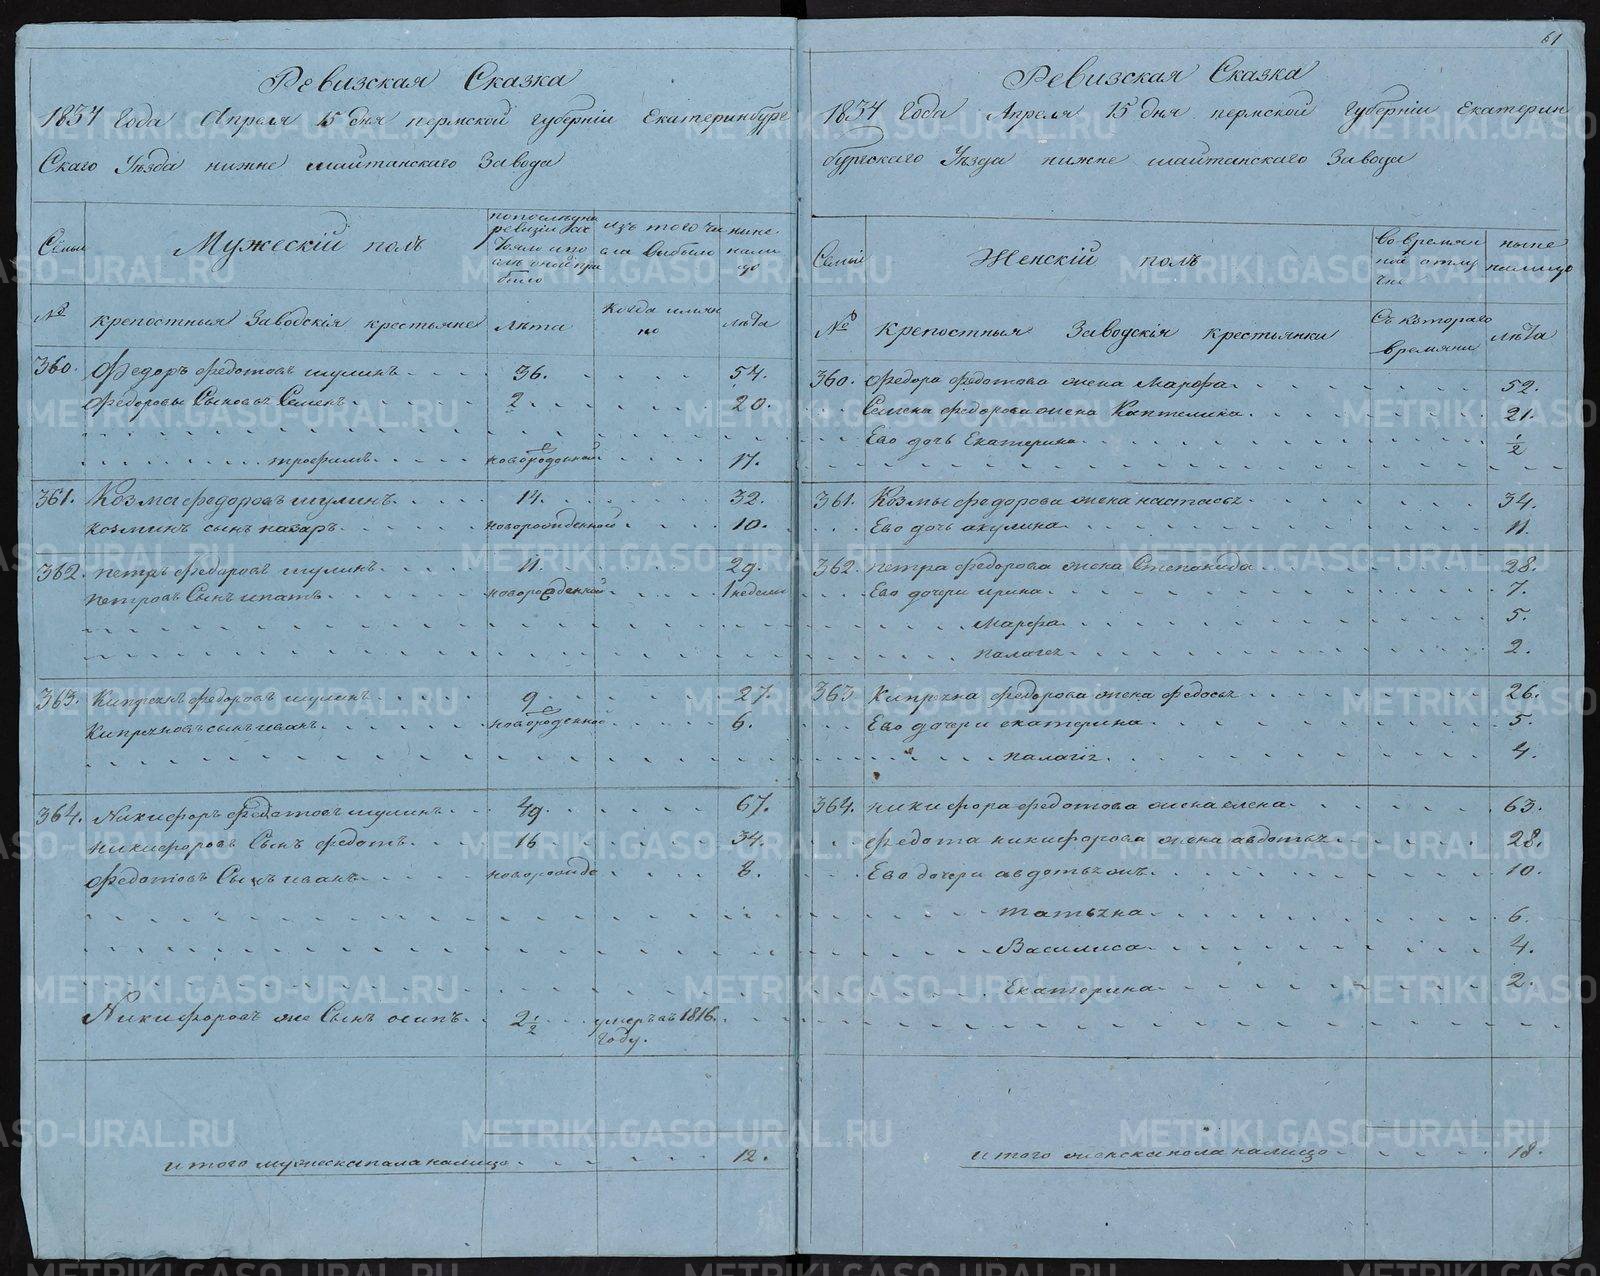 Ревизская Сказка
1834 Года Апреля 15 дня пермской губернiи Екатеринбург
Скаго Уѣзда нижне шайтанскаго Завода
Семьи
Мужескiй полъ
по последней ревизiи состояло и после оной прибыло
изъ того числа выбыло
ныне налицо
№
крепостныя Заводскiя крестьяне
лѣта
Когда имянно
лѣта
360. Федоръ федотовъ шулинъ 36. 54.
федоровы Сыновья Семенъ 2 20.
трофимъ новорожденной 17.
361. Козма федоровъ шулинъ 14. 32.
козминъ сынъ назаръ новорожденной 10.
362. петръ федоровъ шулинъ 11. 29.
петровъ Сынъ ипатъ новорожденной 1 недели
363. Кипреянъ федоровъ шулинъ 9 27.
Кипреяновъ сынъ иванъ новорожденной 6.
364. Никифоръ федотовъ шулинъ 49. 67.
никифоровъ Сынъ федотъ 16 34.
федотовъ Сынъ иванъ новорожде 8.
Никифоровъ же Сынъ осипъ 2 1/2 умеръ въ 1816. году.
итого мужеска пола налицо 12.
61
Ревизская Сказка
1834 года Апреля 15 дня пермской губернiи Екатерин
бургскаго Уѣзда нижне шайтанскаго Завода
Семьи
Женскiй полъ
во временной отлучке
ныне налицо
№
крепостныя Заводскiя крестьянки
Съ котораго времяни
лѣта
360. федора федотова жена Марфа 52.
Семена федорова жена Каптелина 21.
Ево дочь Екатерина 1/2
361. Козмы федорова жена настасья 34.
Ево дочь акулина 11.
362. петра федорова жена Степанида 28.
Ево дочери ирина 7.
Марфа 5.
палагея 2.
363. Кипреяна федорова жена федосья 26.
Ево дочери екатерина 5.
палагiя 4.
364. никифора федотова жена елена 63.
федота никифорова жена авдотья 28.
Ево дочери авдотья жъ 10.
татьяна 6.
Василиса 4.
Екатерина 2.
итого женска пола налицо 18.
METRIKI.GASO-URAL.RU